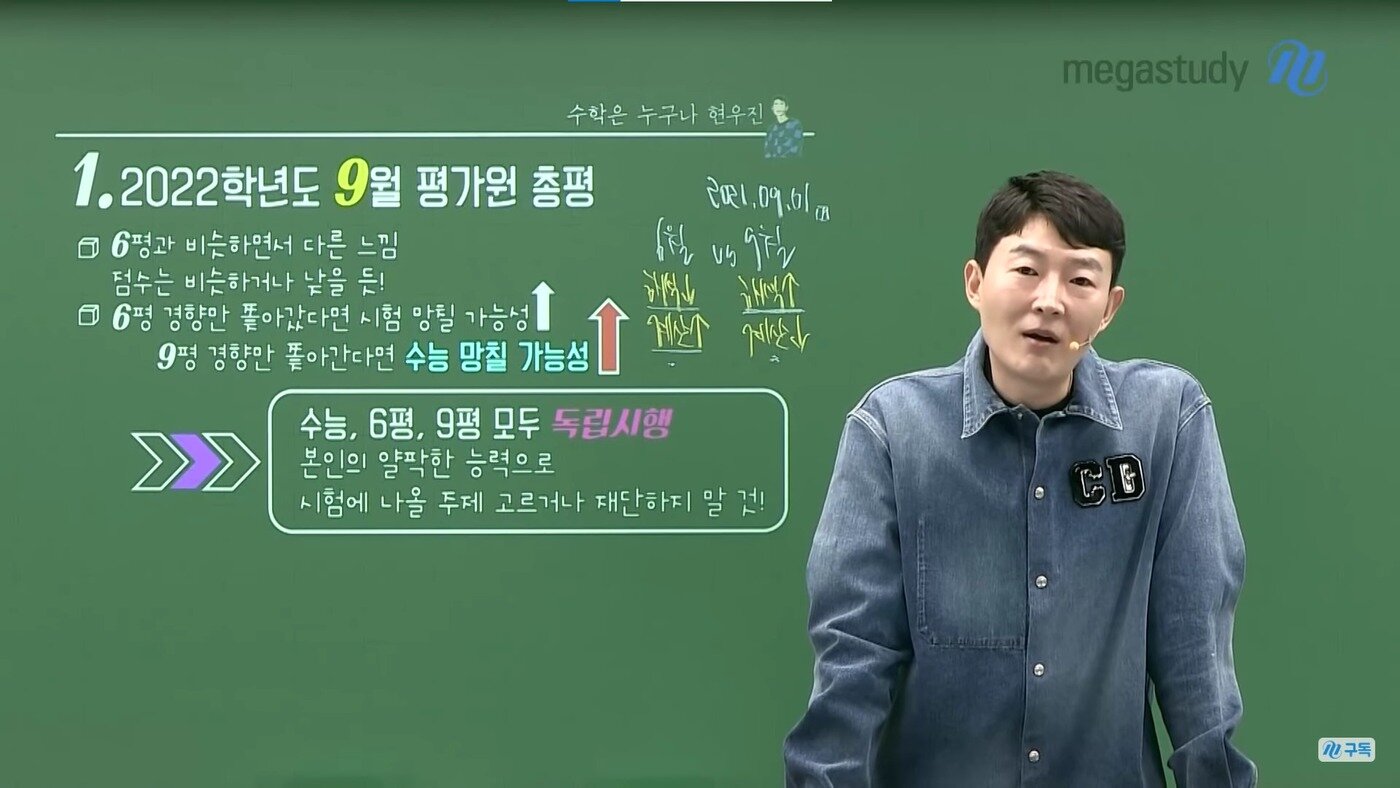 megastudy
수학은 누구나 현우진
1. 2022학년도 9월 평가원 총평
6평과 비슷하면서 다른 느낌
점수는 비슷하거나 낮을 듯!
6평 경향만 쫓아갔다면 시험 망칠 가능성
9평 경향만 쫓아간다면 수능 망칠 가능성
수능, 6평, 9평 모두 독립시행
본인의 얄팍한 능력으로
시험에 나올 주제 고르거나 재단하지 말 것!
2021.09.01
6월 vs 9월
계산↑ 계산↓
CD
구독